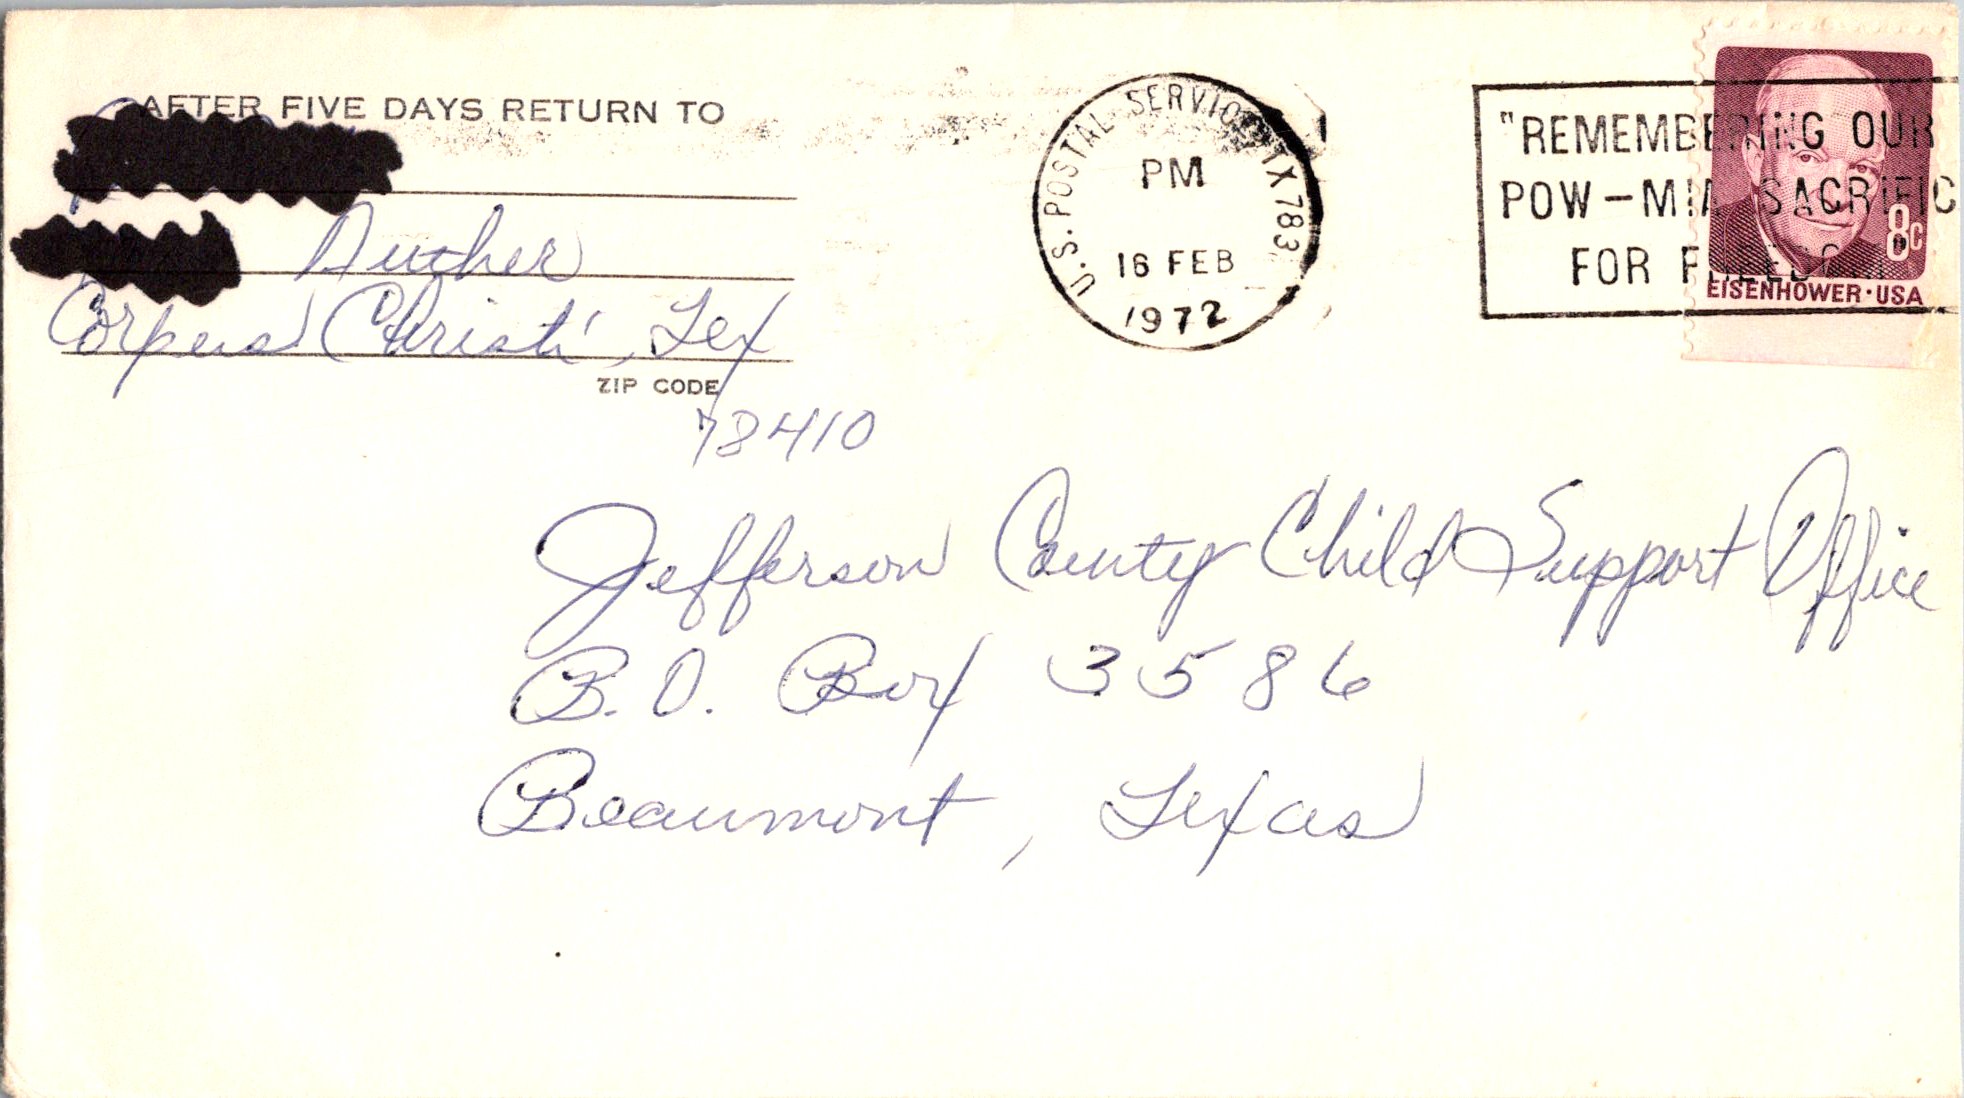 AFTER FIVE DAYS RETURN TO
Corpus Christi, Tex
ZIP CODE
78410
U.S. POSTAL SERVICE TX 783
PM
16 FEB
1972
"REMEMBERING OUR
POW-MIA SACRIFIC
FOR FREEDOM"
8c
EISENHOWER · USA
Jefferson County Child Support Office
P.O. Box 3586
Beaumont, Texas